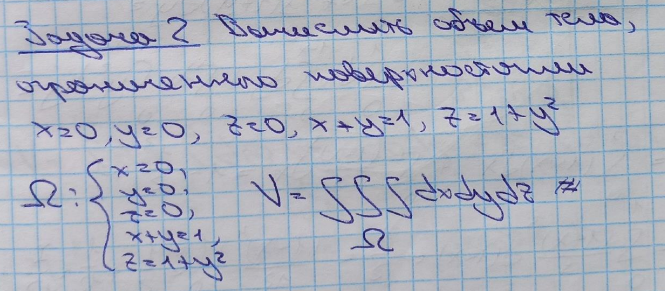 Задача 2 Вычислить объем тела,
ограниченного поверхностями
x=0, y=0, z=0, x+y=1, z=1+y²
Ω: { x=0, y=0, z=0, x+y=1, z=1+y² V = ∫∫∫ dxdydz
Ω